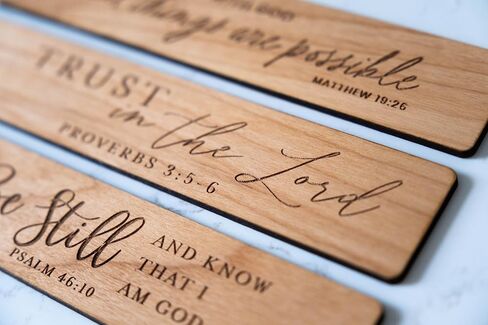 things are possible
MATTHEW 19:26
TRUST
in the Lord
PROVERBS 3:5.6
Be Still
AND KNOW
THAT I
AM GOD
PSALM 46:10